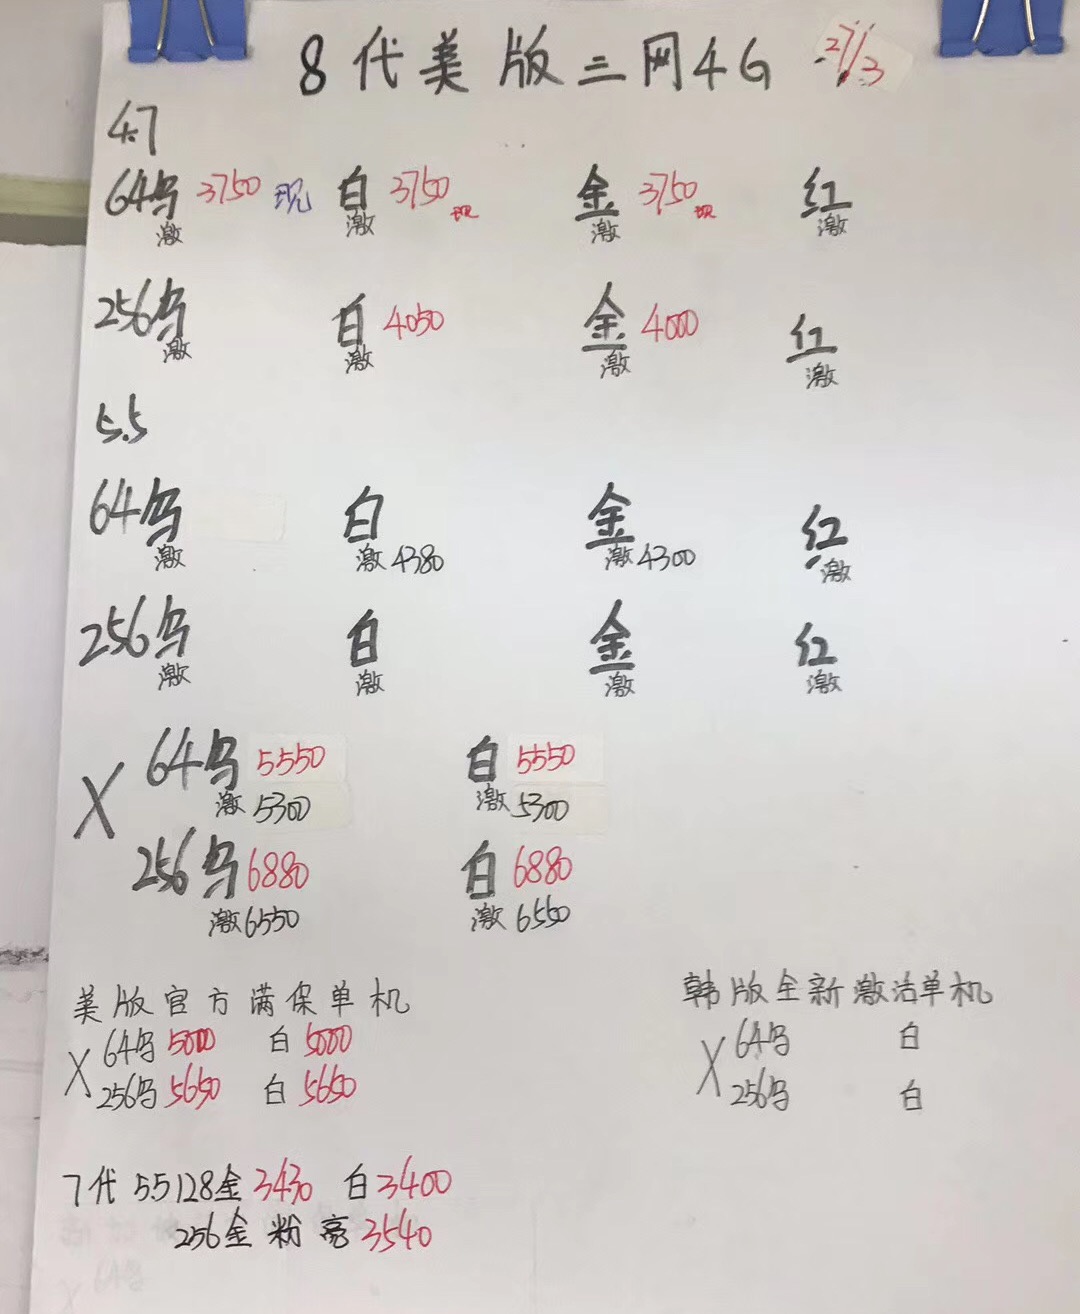 8代美版三网4G 27/3
4.7
64乌 3750 现 白 3750 现 金 3750 现 红
激 激 激 激
256乌 白 4050 金 4000 红
激 激 激 激
5.5
64乌 白 金 红
激 激 4380 激 4300 激
256乌 白 金 红
激 激 激 激
X 64乌 5550 白 5550
激 5300 激 5300
256乌 6880 白 6880
激 6550 激 6550
美版官方满保单机 韩版全新激活单机
X 64乌 5000 白 5000 X 64乌 白
256乌 5650 白 5650 256乌 白
7代 5.5 128金 3430 白 3400
256金 粉 亮 3540